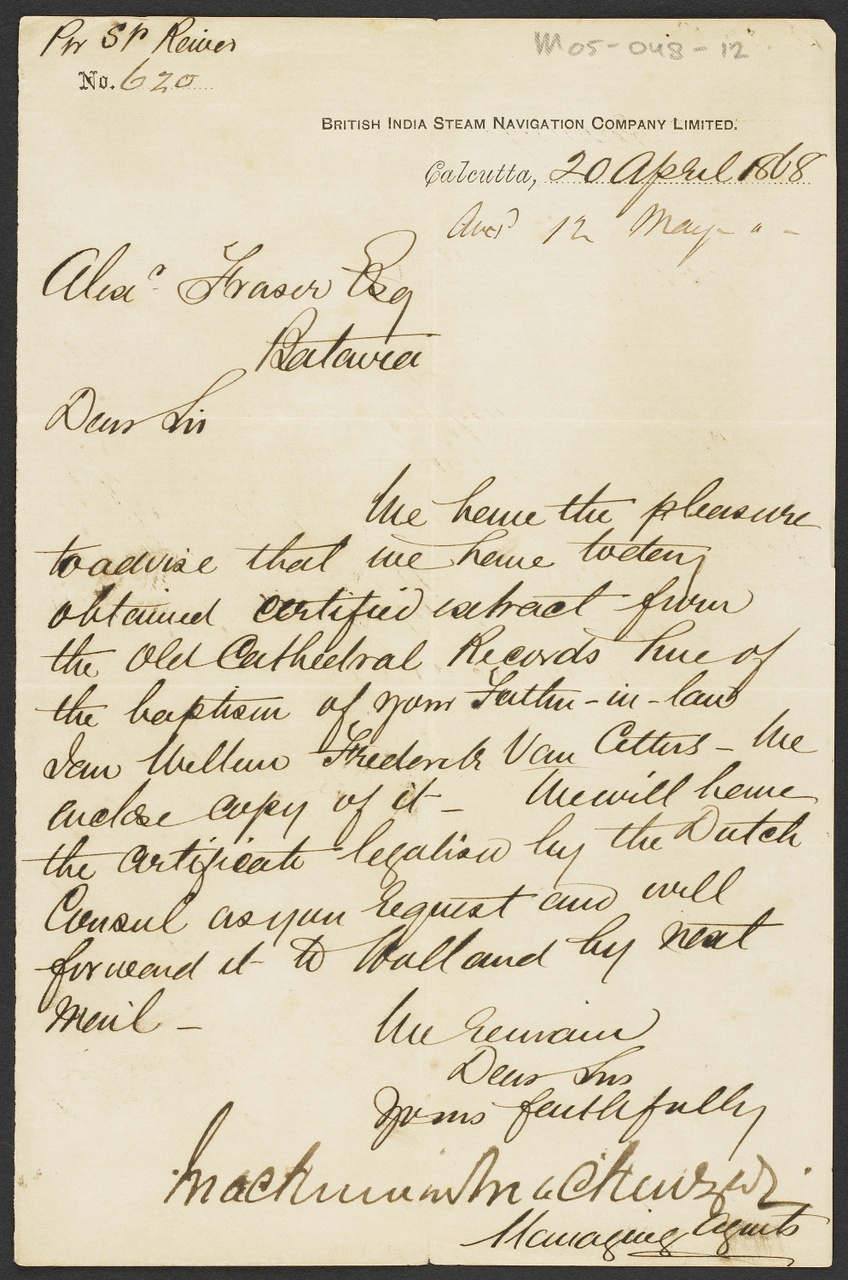 Per Sr Reiver
M05-048-12
No. 620
BRITISH INDIA STEAM NAVIGATION COMPANY LIMITED.
Calcutta, 20 April 1868
Ansd 12 May - " -
Alexr Fraser Esq
Batavia
Dear Sir
We have the pleasure
to advise that we have today
obtained certified extract from
the Old Cathedral Records here of
the baptism of your Father-in-law
Jan Willem Frederik Van Citters - We
enclose copy of it - We will have
the certificate legalised by the Dutch
Consul as you request and will
forward it to Holland by next
Mail -
We remain
Dear Sir
Yours faithfully
Mackinnon Mackenzie &
Managing Agents